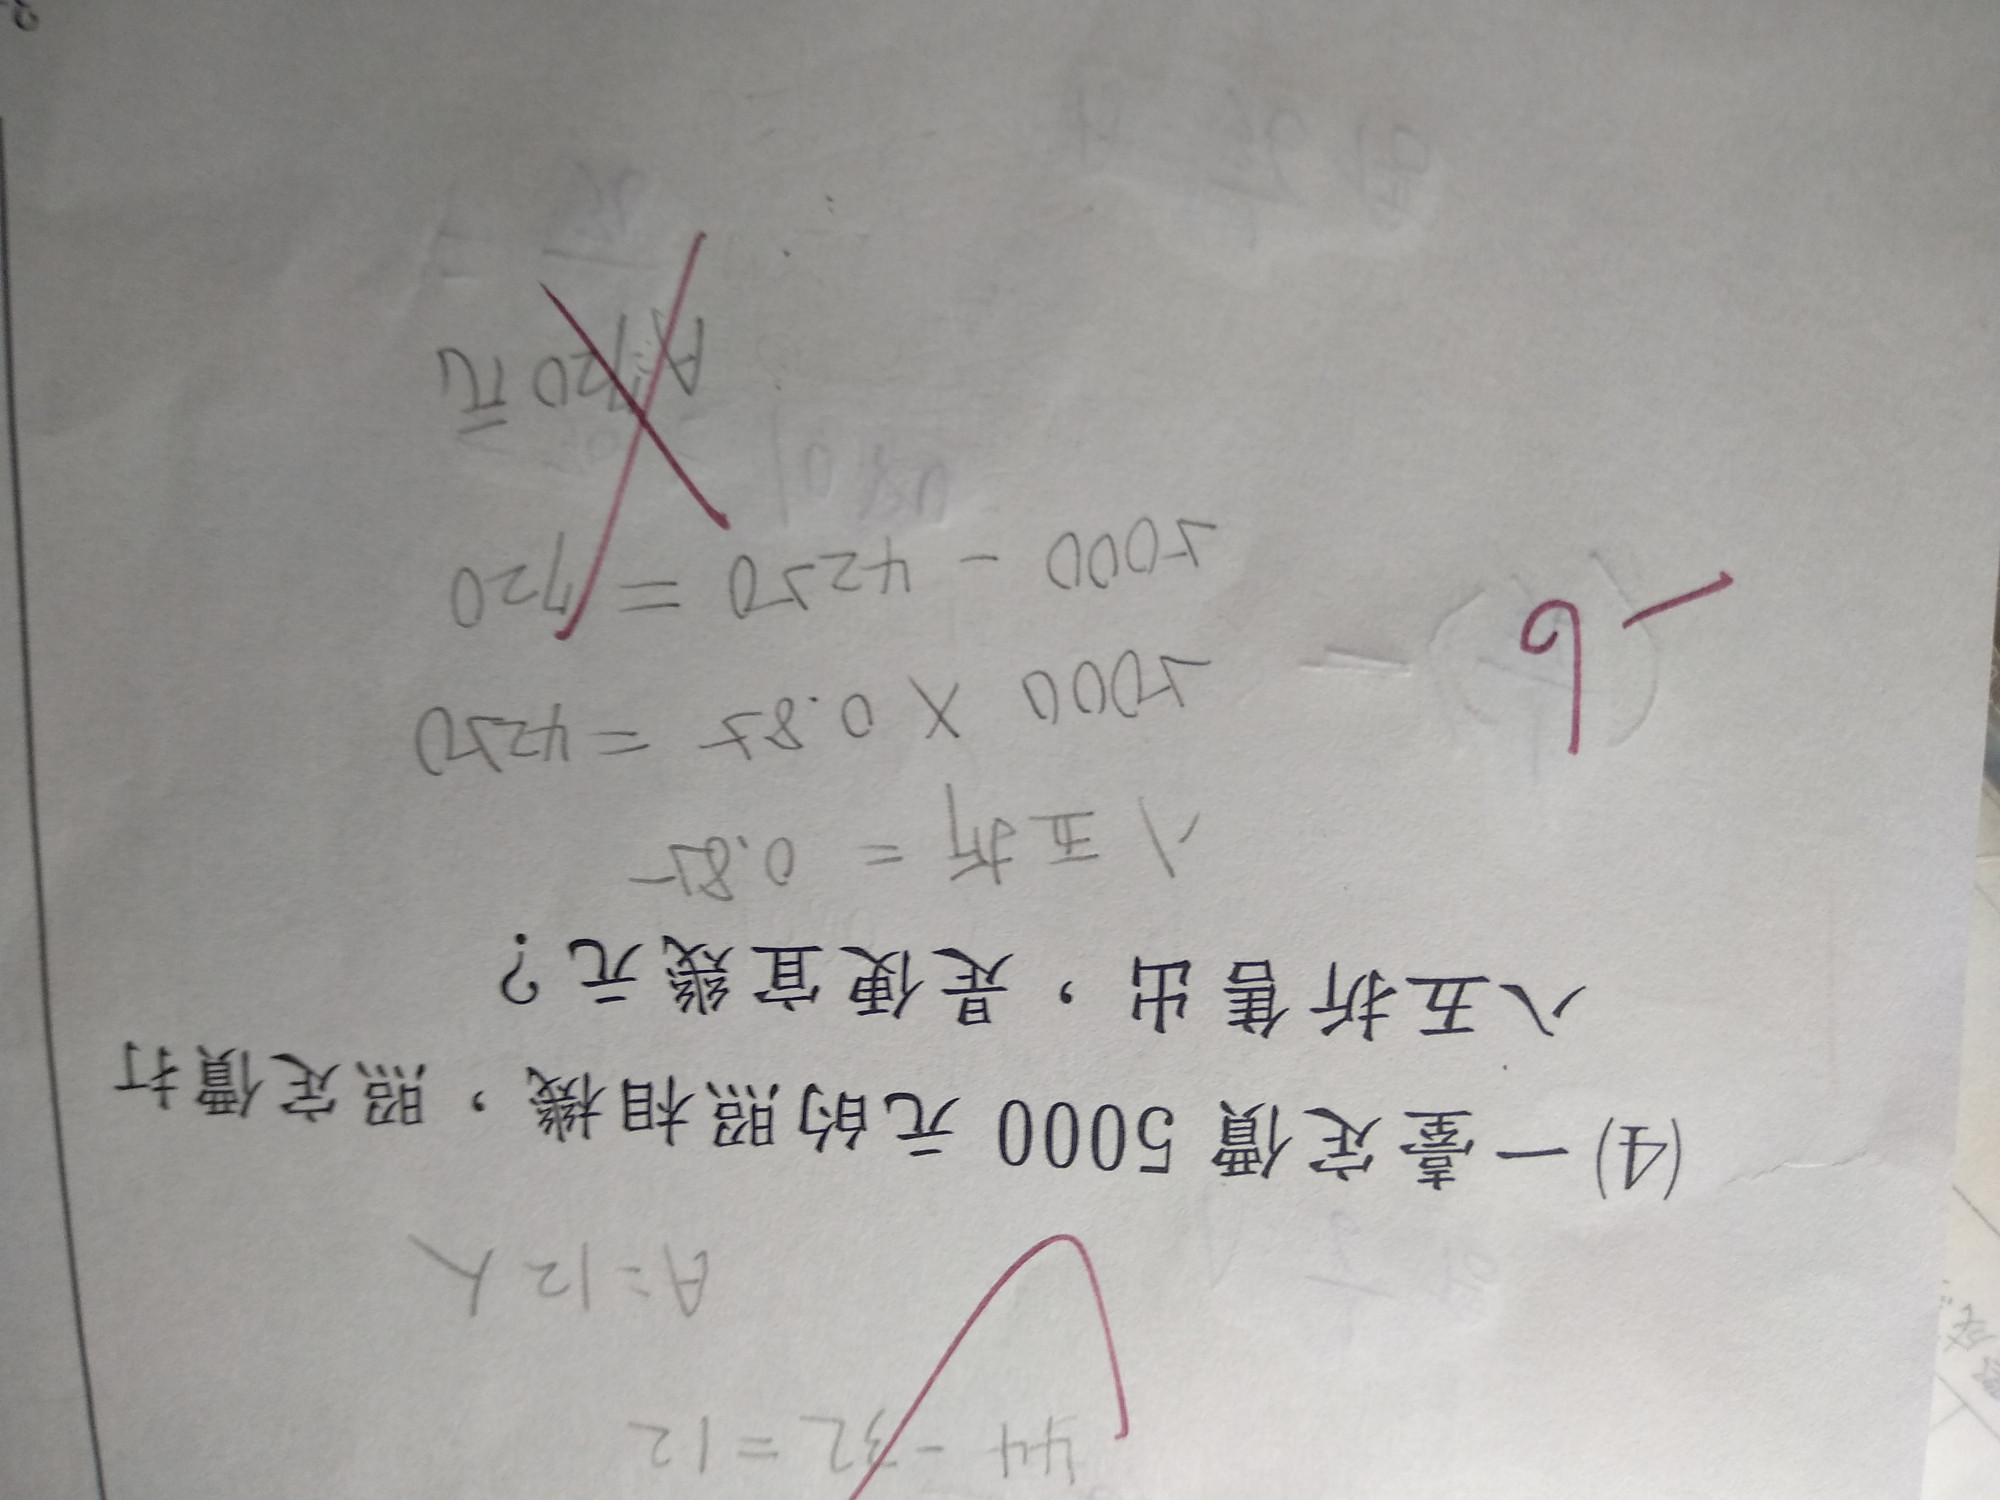 44-32=12
A=12人
(4)一臺定價 5000 元的照相機，照定價打
八五折售出，是便宜幾元？
八五折=0.85
5000×0.85=4250
5000-4250=720
A:720元
-6